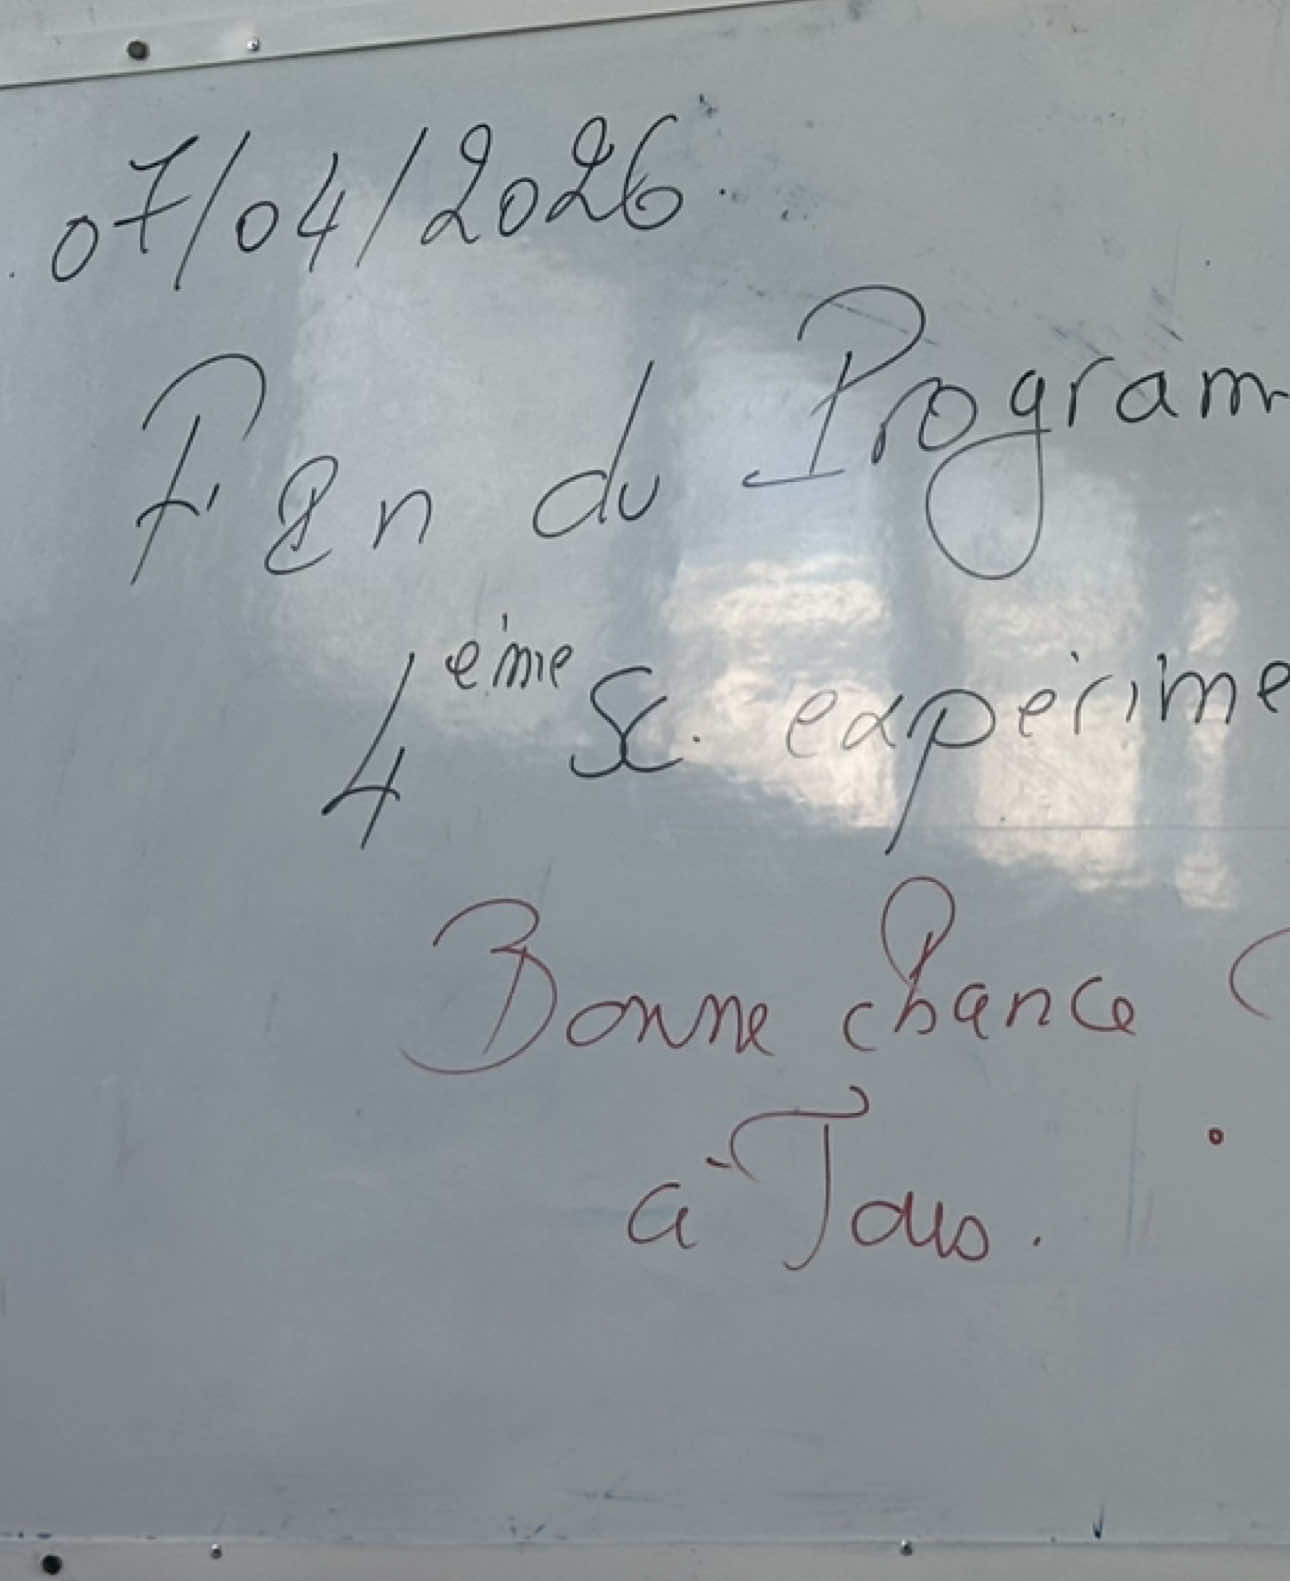 07/04/2026.
Fin du Program
4ème Sc. expérime
Bonne chance
à Tous.